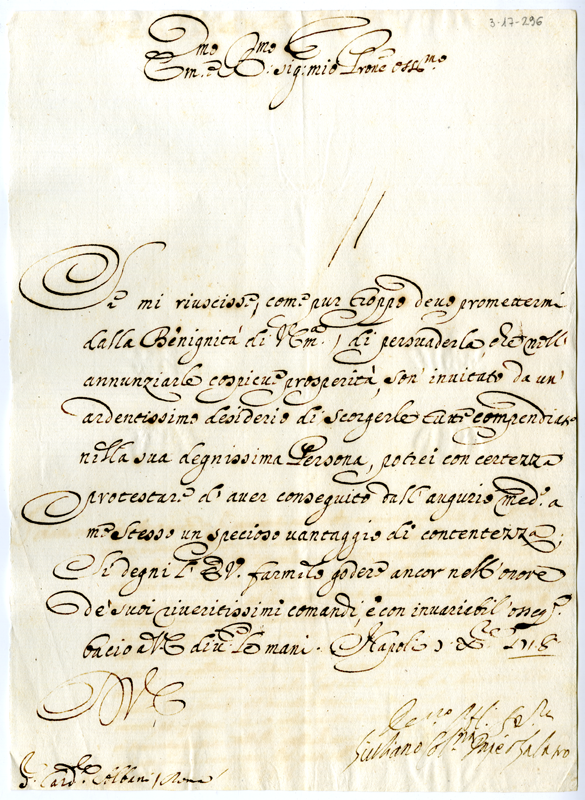 3-17-296
Em.º R. sig: mio Pron.e oss.mo
Se mi riuscisse, come pur troppo devo promettermi
dalla Benignità di V. Em.a, di persuaderla, che nell'
annunziarle cospicue prosperità, son' invitato da un'
ardentissimo desiderio di scorgerle tutte compendiate
nella sua degnissima Persona, potrei con certezza
protestare di aver conseguito dall'augurio med.o a
me stesso un specioso vantaggio di contentezza;
Si degni l'E.V. farmelo godere ancor nell'onore
de' suoi riveritissimi comandi, e con invariabil' osseq.o
bacio a V.E. le mani. Napoli
D V E
Giuliano
S.r Card.le Albani / Roma